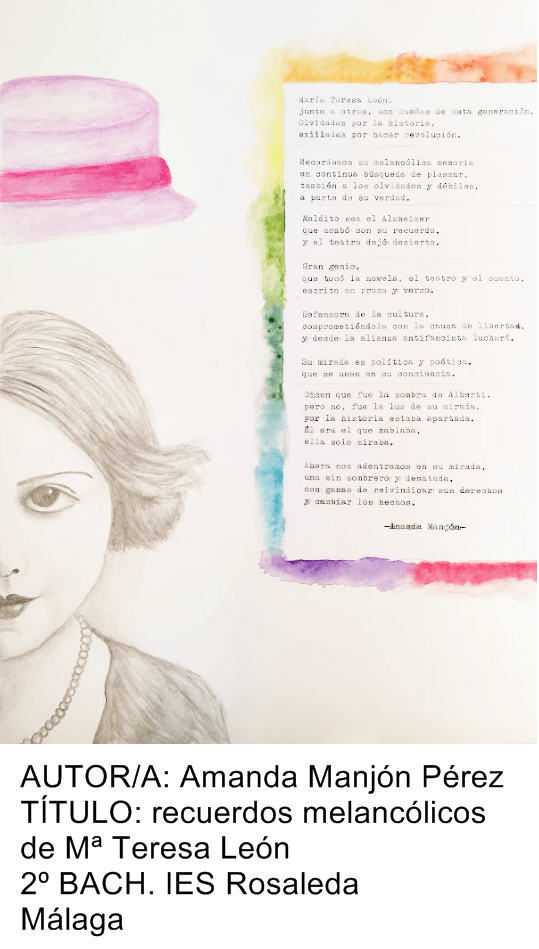 María Teresa León,
junto a otras, son dueñas de esta generación.
Olvidadas por la historia,
exiliadas por hacer revolución.
Recordemos su melancólica memoria
en continua búsqueda de plasmar,
también a los olvidados y débiles,
a parte de su verdad.
Maldito sea el Alzheimer
que acabó con su recuerdo,
y el teatro dejó desierto.
Gran genio,
que tocó la novela, el teatro y el cuento,
escrito en prosa y verso.
Defensora de la cultura,
comprometiéndola con la causa de libertad,
y desde la alianza antifascista luchará.
Su mirada es política y poética,
que se unen en su conciencia.
Dicen que fue la sombra de Alberti,
pero no, fue la luz de su mirada,
por la historia estaba apartada.
Él era el que hablaba,
ella solo miraba.
Ahora nos adentramos en su mirada,
una sin sombrero y desatada,
con ganas de reivindicar sus derechos
y cambiar los hechos.
—Amanda Manjón—
AUTOR/A: Amanda Manjón Pérez
TÍTULO: recuerdos melancólicos
de Mª Teresa León
2º BACH. IES Rosaleda
Málaga